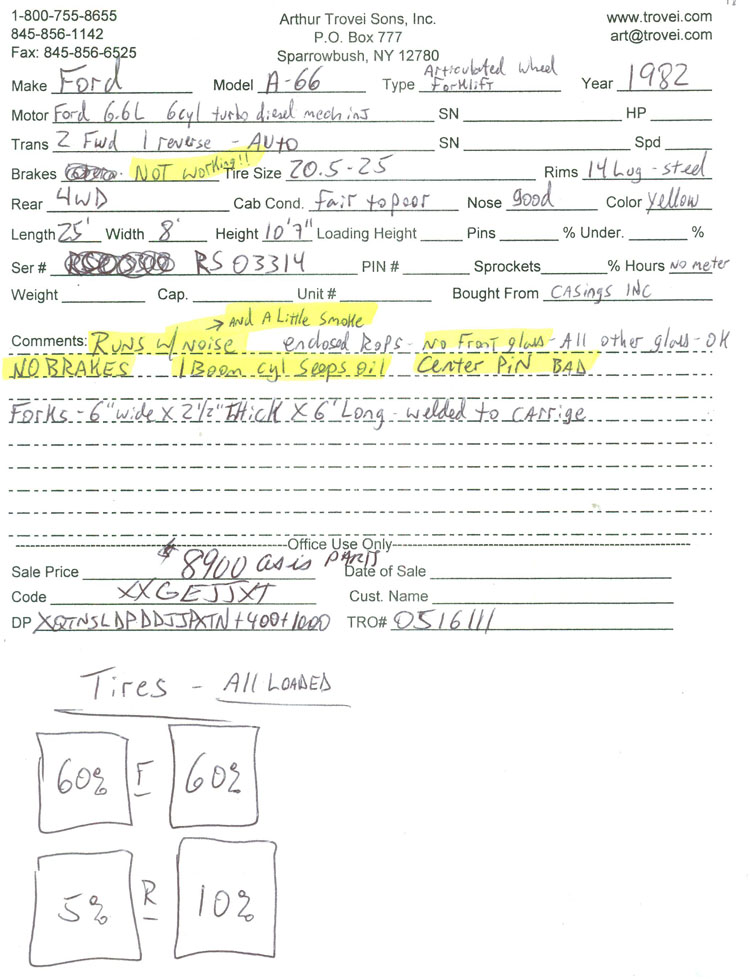 1-800-755-8655 Arthur Trovei Sons, Inc. www.trovei.com
845-856-1142 P.O. Box 777 art@trovei.com
Fax: 845-856-6525 Sparrowbush, NY 12780
Make Ford Model A-66 Type Articulated Wheel Forklift Year 1982
Motor Ford 6.6L 6cyl turbo diesel mech inj SN HP
Trans 2 Fwd 1 reverse - AUTO SN Spd
Brakes NOT Working!! Tire Size 20.5-25 Rims 14 Lug - steel
Rear 4WD Cab Cond. Fair to poor Nose good Color Yellow
Length 25' Width 8' Height 10'7" Loading Height Pins % Under. %
Ser # RS 03314 PIN # Sprockets % Hours No meter
Weight Cap. Unit # Bought From CASings INC
→ And A Little Smoke
Comments: Runs w/ Noise enclosed Rops - No Front glass - All other glass - OK
NO BRAKES 1 Boom cyl Seeps oil Center PiN BAD
Forks - 6" wide X 2 1/2" THick X 6" Long - welded to CArrige
Office Use Only
Sale Price $8900 as is PARTS Date of Sale
Code XXGEJJXT Cust. Name
DP +400+1000 TRO# 0516111
Tires - All LOADED
60% F 60%
5% R 10%